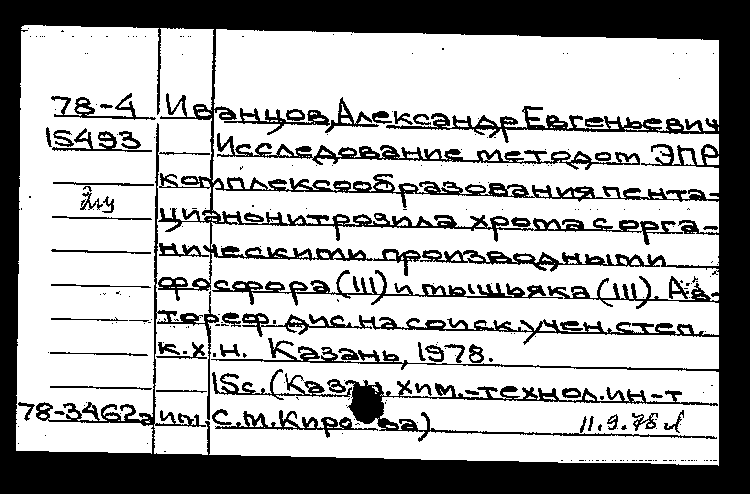 78-4 Иванцов, Александр Евгеньевич
15493 Исследование методом ЭПР
комплексообразования пента-
цианонитрозила хрома с орга-
ническими производными
фосфора (III) и мышьяка (III). Ав-
тореф. дис. на соиск. учен. степ.
к.х.н. Казань, 1978.
15с. (Казан. хим.-технол. ин-т
78-3462а им. С.М. Кирова).
11.9.78